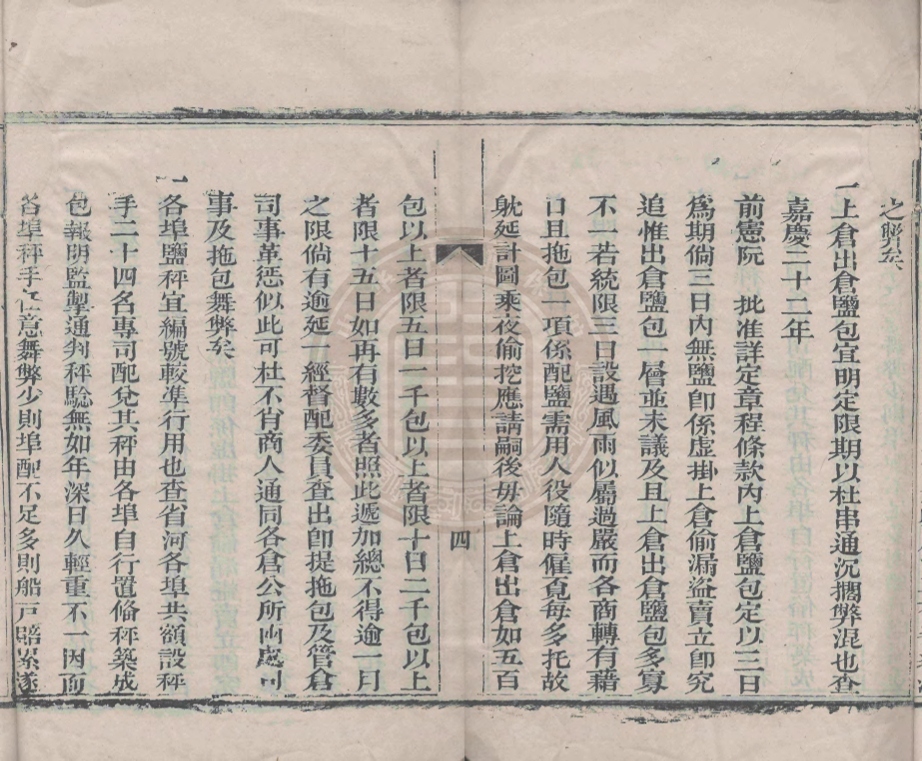 之弊矣
一上倉出倉鹽包宜明定限期以杜串通沉擱弊混也查
嘉慶二十二年
前憲院 批准詳定章程條款內上倉鹽包定以三日
爲期倘三日內無鹽卽係虛掛上倉偷漏盜賣立卽究
追惟出倉鹽包一層並未議及且上倉出倉鹽包多寡
不一若統限三日設遇風雨似屬過嚴而各商轉有藉
口且拖包一項係配鹽需用人役隨時僱覓每多托故
躭延計圖乘夜偷挖應請嗣後毋論上倉出倉如五百
四
包以上者限五日一千包以上者限十日二千包以上
者限十五日如再有數多者照此遞加總不得逾一月
之限倘有逾延一經督配委員查出卽提拖包及管倉
司事革惩似此可杜不肖商人通同各倉公所 處司
事及拖包舞弊矣
一各埠鹽秤宜編號較準行用也查省河各埠共額設秤
手二十四名專司配兌其秤由各埠自行置備秤築成
包報明監掣通判秤驗無如年深日久輕重不一因而
各埠秤手任意舞弊少則埠配不足多則船戸賠累遂